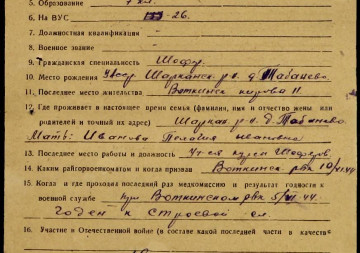 5. Образование 7 кл.
6. На ВУС 133-26.
7. Должностная квалификация —
8. Военное звание —
9. Гражданская специальность Шофер.
10. Место рождения Шарканск. р-н. д. Табанево.
11. Последнее место жительства Воткинск Кирова 11
12. Где проживает в настоящее время семья (фамилия, имя и отчество жены или
родителей и точный их адрес) Шаркан. р-н. д. Табанево
Мать: Иванова Пелагия Ивановна
13. Последнее место работы и должность курсы Шоферов
14. Каким райгорвоенкоматом и когда призван Воткинск РВК
15. Когда и где проходил последний раз медкомиссию и результат годности к
военной службе при Воткинском РВК 5/VII 44.
Годен к строевой сл.
16. Участие в Отечественной войне (в составе какой последней части, в качеств